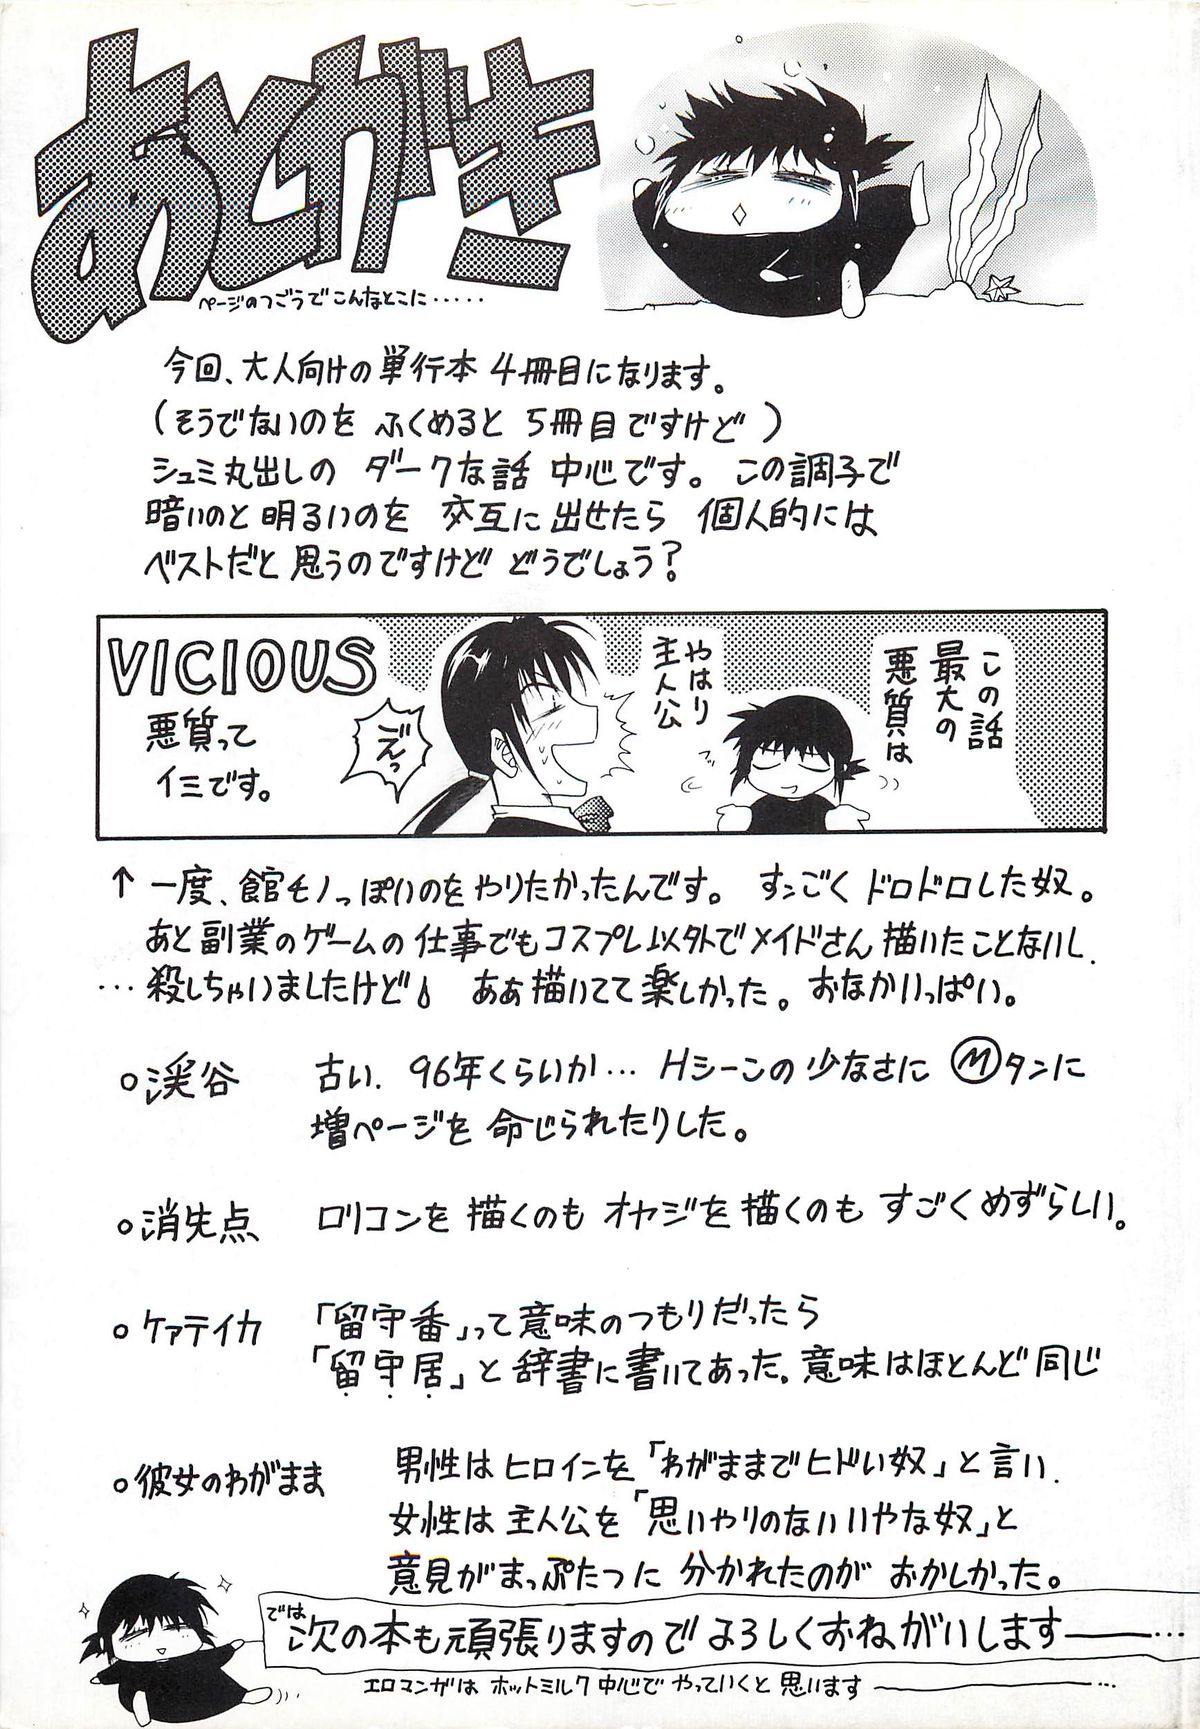 あとがき
ページのつごうでこんなとこに・・・・・
今回、大人向けの単行本 4冊目になります。
(そうでないのを ふくめると 5冊目ですけど)
シュミ丸出しの ダークな話 中心です。この調子で
暗いのと明るいのを 交互に出せたら 個人的には
ベストだと思うのですけど どうでしょう?
VICIOUS
悪質って
イミです。
この話
最大の
悪質は
やはり
主人公
ごえっ
↑ 一度、館モノっぽいのをやりたかったんです。 すンごくドロドロした奴。
あと副業のゲームの仕事でもコスプレ以外でメイドさん描いたことないし、
…殺しちゃいましたけど ああ描いてて楽しかった。おなかいっぱい。
○渓谷 古い、96年くらいか… Hシーンの少なさに Ⓜタンに
増ページを命じられたりした。
○消失点 ロリコンを描くのも オヤジを描くのも すごくめずらしい。
○ケァテイカ 「留守番」って意味のつもりだったら
「留守居」と辞書に書いてあった。意味はほとんど同じ
○彼女のわがまま 男性はヒロインを「わがままでヒドい奴」と言い、
女性は主人公を「思いやりのないいやな奴」と
意見がまっぷたつに 分かれたのが おかしかった。
では
次の本も頑張りますのでよろしくおねがいします――…
エロマンガは ホットミルク中心で やっていくと思います――…